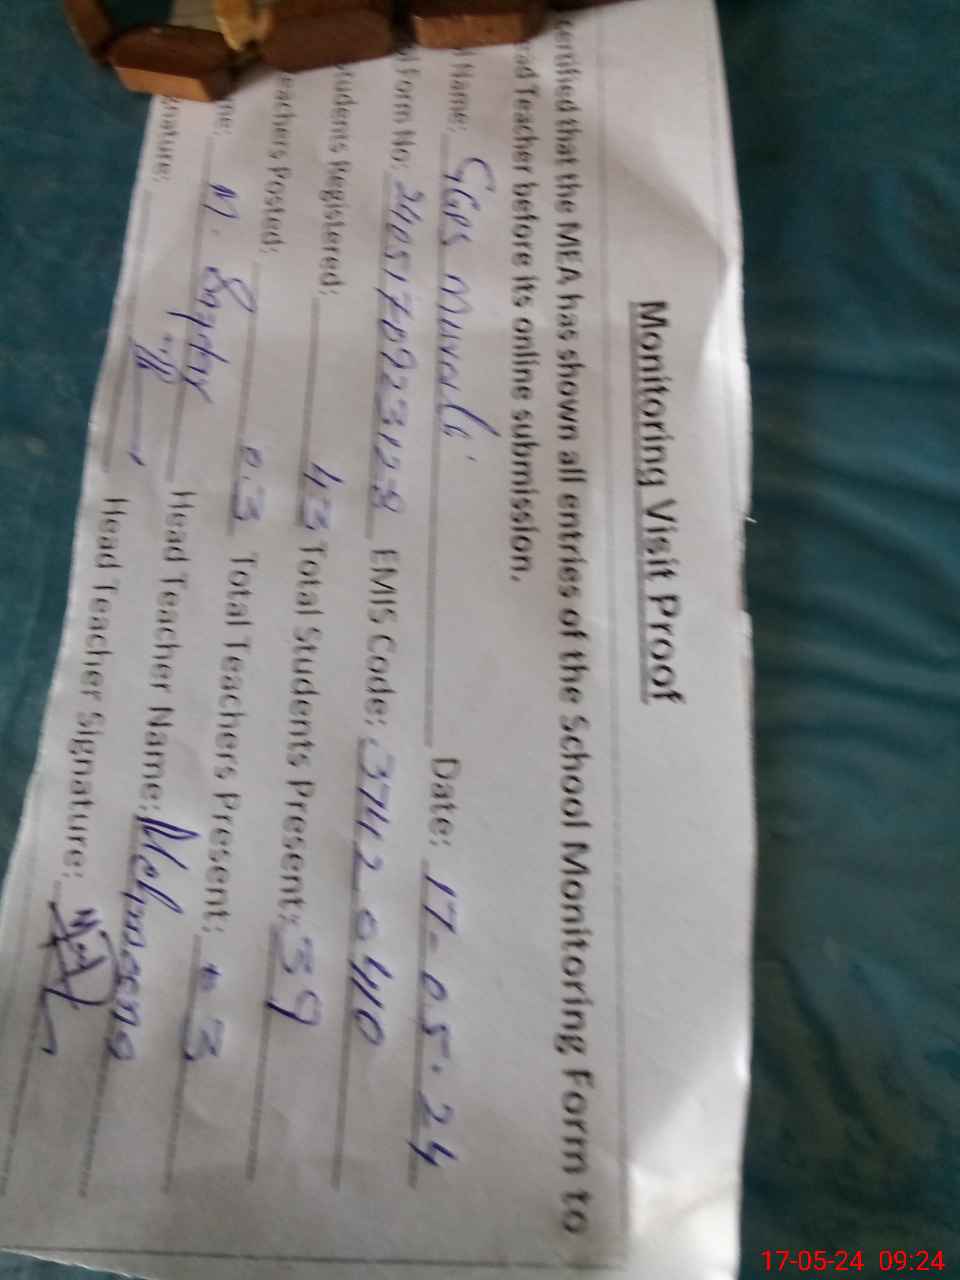 Monitoring Visit Proof
certified that the MEA has shown all entries of the School Monitoring Form to
ad Teacher before its online submission.
Name: GGPS Date: 17-05-24
Form No: 240517092312 EMIS Code: 37420410
tudents Registered: 43 Total Students Present: 39
eachers Posted: 03 Total Teachers Present: 03
me: M. Head Teacher Name:
gnature: Head Teacher Signature:
17-05-24 09:24